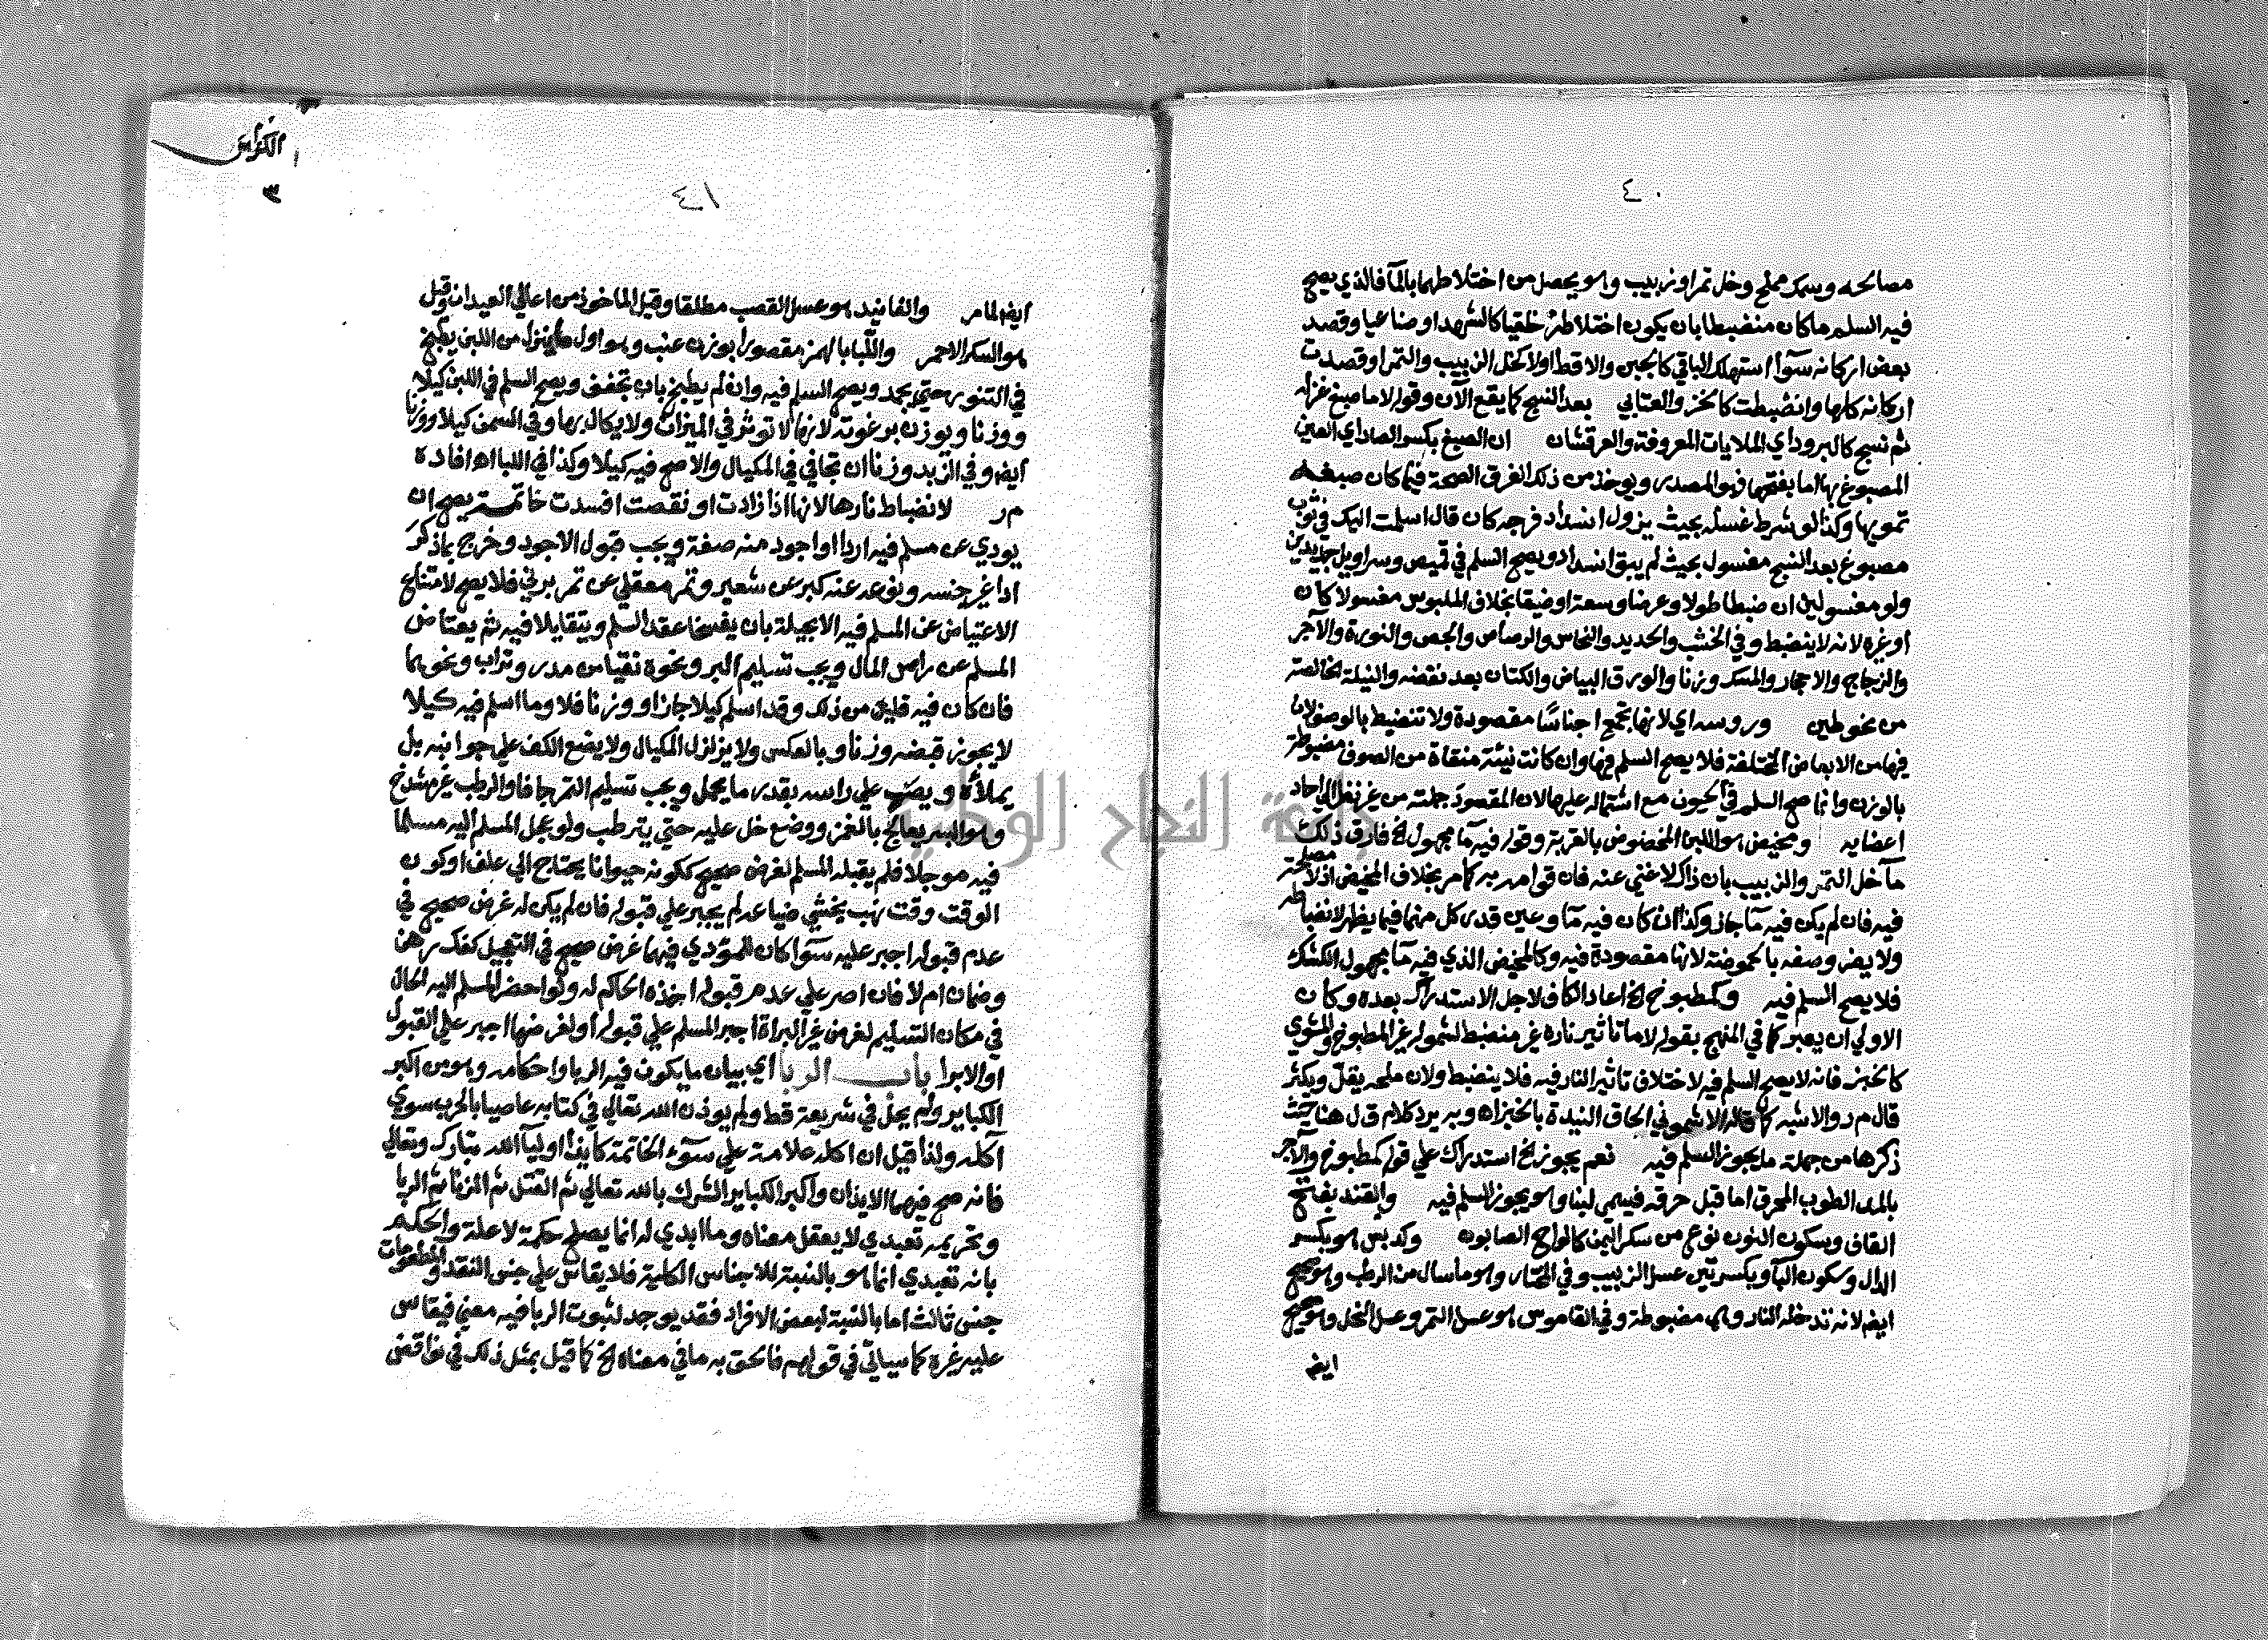 ٤٠
مصالحه وسمك مملح وخل تمر او زبيب وهو يحصل من اختلاطهما بالمآ فالذي يصح
فيه السلم ما كان منضبطا بان يكون اختلاطه خلقيا كالشهد او صناعيا وقصد
بعض اركانه سوآ استهلك الباقي كالجبن والاقط او لا كخل الزبيب والتمر او قصدت
اركانه كلها وانضبطت كالخز والعتابي بعد النسج كما يقع الآن وقوله لا ما صبغ غزله
ثم نسج كالبرود اي الملايات المعروفة والعرقشان ان الصبغ بكسر الصاد اي العين
المصبوغ بها اما بفتحها فهو المصدر ويوخذ من ذلك الفرق الصحة فيما كان صبغه
تمويها وكذا لو شرط غسله بحيث يزول انسداد فرجه كان قال اسلمت اليك في ثوب
مصبوغ بعد النسج مغسول بحيث لم يبق انسداد ويصح السلم في قميص وسراويل جديدين
ولو مغسولين ان ضبطا طولا وعرضا وسعة او ضيقا بخلاف الملبوس مغسولا كان
او غيره لانه لا ينضبط وفي الخشب والحديد والنحاس والرصاص والجص والنورة والآجر
والزجاج والاحجار والمسك وزنا والورق البياض والكتان بعد نقضه والنيلة الخالصة
من نحو طين وروسه اي لانها تجمع اجناسًا مقصودة ولا تنضبط بالوصف ولان
فيها من الابعاض المختلفة فلا يصح السلم فيها وان كانت نيئة منقاة من الصوف مضبوطة
بالوزن وانما صح السلم في الحيوان مع اشتماله عليها لان المقصود جملته من غير نظر الي احاد
اعضايه ومخيض هو اللبن المخضوض بالقربة وقوله فيه مآ مجهول الخ فارق ذلك
مآ خل التمر والزبيب بان ذاك لا غني عنه فان قوامهد به كما مر بخلاف المخيض اذ لا مصلحة له
فيه فان لم يكن فيه مآ جاز وكذا ان كان فيه مآ وعين قدر كل منهما فيما يظهر لانضباطه
ولا يضر وصفه بالحموضة لانها مقصودة فيه وكالمخيض الذي فيه مآ مجهول الكشك
فلا يصح السلم فيه وكمطبوخ الخ اعاد الكاف لاجل الاستدراك بعده وكان
الاولي ان يعبر كما في المنهج بقوله لا ما تاثير ناره غير منضبط لشموله غير المطبوخ والمشوي
كالخبز فانه لا يصح السلم فيه لاختلاف تاثير النار فيه فلا ينضبط ولان ملحه يقل ويكثر
قال م ر والاشبه كما قاله الاشموني الحاق النيدة بالخبز اه وبه يرد كلام ق ل هنا حيث
ذكرها من جملة ما يجوز السلم فيه نعم يجوز الخ استدراك علي قوله كمطبوخ والآجر
بالمد الطوب المحرق اما قبل حرقه فيسمي لبنا وهو يجوز السلم فيه والقند بفتح
القاف وسكون النون نوع من سكر اليمن كالواح الصابون وكدبس هو بكسر
الدال وسكون البآ وبكسرتين عسل الزبيب وفي المختار وهو ما سال من الرطب وهو صحيح
ايضا لانه تدخله النار وهي مضبوطة وفي القاموس هو عسل التمر وعسل النحل وهو صحيح
ايضا
الكراس
٣
٤١
ايضا لما مر والفانيد هو عسل القصب مطلقا وقيل الماخوذ من اعالي العيدان وقيل
هو السكر الاحمر واللبا بالهمز مقصورا بوزن عنب وهو اول ما ينزل من اللبن يطبخ
في التنور حتي يجمد ويصح السلم فيه وان لم يطبخ بان تجفف ويصح السلم في اللبن كيلا
ووزنا ويوزن برغوته لانها لا توثر في الميزان ولا يكال بها وفي السمن كيلا ووزنا
ايضا وفي الزبد وزنا ان تجافي في المكيال والا صح فيه كيلا وكذا في اللبا اه افاده
م ر لانضباط نارها لانها اذا زادت او نقصت افسدت خاتمة يصح ان
يودي عن مسلم فيه اردا او اجود منه صفة ويجب قبول الاجود وخرج بما ذكر
اداغير جنسه ونوعه عنه كبر عن شعير وتمر معقلي عن تمر برني فلا يصح لامتناع
الاعتياض عن المسلم فيه الا بحيلة بان يفسخا عقد السلم ويتقايلا فيه ثم يعتاض
المسلم عن راس المال ويجب تسليم البر ونحوه نقيا من مدر وتراب ونحوهما
فان كان فيه قليل من ذلك وقد اسلم كيلا جاز او وزنا فلا وما اسلم فيه كيلا
لا يجوز قبضه وزنا وبالعكس ولا يزلزل المكيال ولا يضع الكف علي جوانبه بل
يملاه ويصب علي راسه بقدر ما يحمل ويجب تسليم التمر جافا والرطب غير مشدخ
وهو البسر يعالج بالغمز ووضع خل عليه حتي يترطب ولو عجل المسلم اليه مسلما
فيه موجلا فلم يقبله المسلم لغرض صحيح ككونه حيوانا يحتاج الي علف او كون
الوقت وقت نهب يخشي ضياعه لم يجبر علي قبوله فان لم يكن له غرض صحيح في
عدم قبوله اجبر عليه سوآ كان للمؤدي فيهما غرض صحيح في التعجيل كفك رهن
وضمان ام لا فان اصر علي عدم قبوله اخذه الحاكم له ولو احضر المسلم اليه الحال
في مكان التسليم لغرض غير البراة اجبر المسلم علي قبوله او لغرضها اجبر علي القبول
او الابرا باب الربا اي بيان ما يكون فيه الربا واحكامه وهو من اكبر
الكباير ولم يحل في شريعة قط ولم يوذن الله تعالي في كتابه عاصيا بالحرب سوي
آكله ولذا قيل ان اكله علامة علي سوء الخاتمة كايذا اوليآ الله تبارك وتعالي
فانه صح فيهما الايذان واكبر الكباير الشرك بالله تعالي ثم القتل ثم الزنا ثم الربا
وتحريمه تعبدي لا يعقل معناه وما ابدي له انما يصلح حكمة لا علة والحكم
بانه تعبدي انما هو بالنسبة للاجناس الكلية فلا يقاس علي جنس النقد والمطعومات
جنس ثالث اما بالنسبة لبعض الافراد فقد يوجد لثبوت الربا فيه معني فيقاس
عليه غيره كما سياتي في قولهم فالحق به ما في معناه الخ كما قيل بمثل ذلك في نواقض